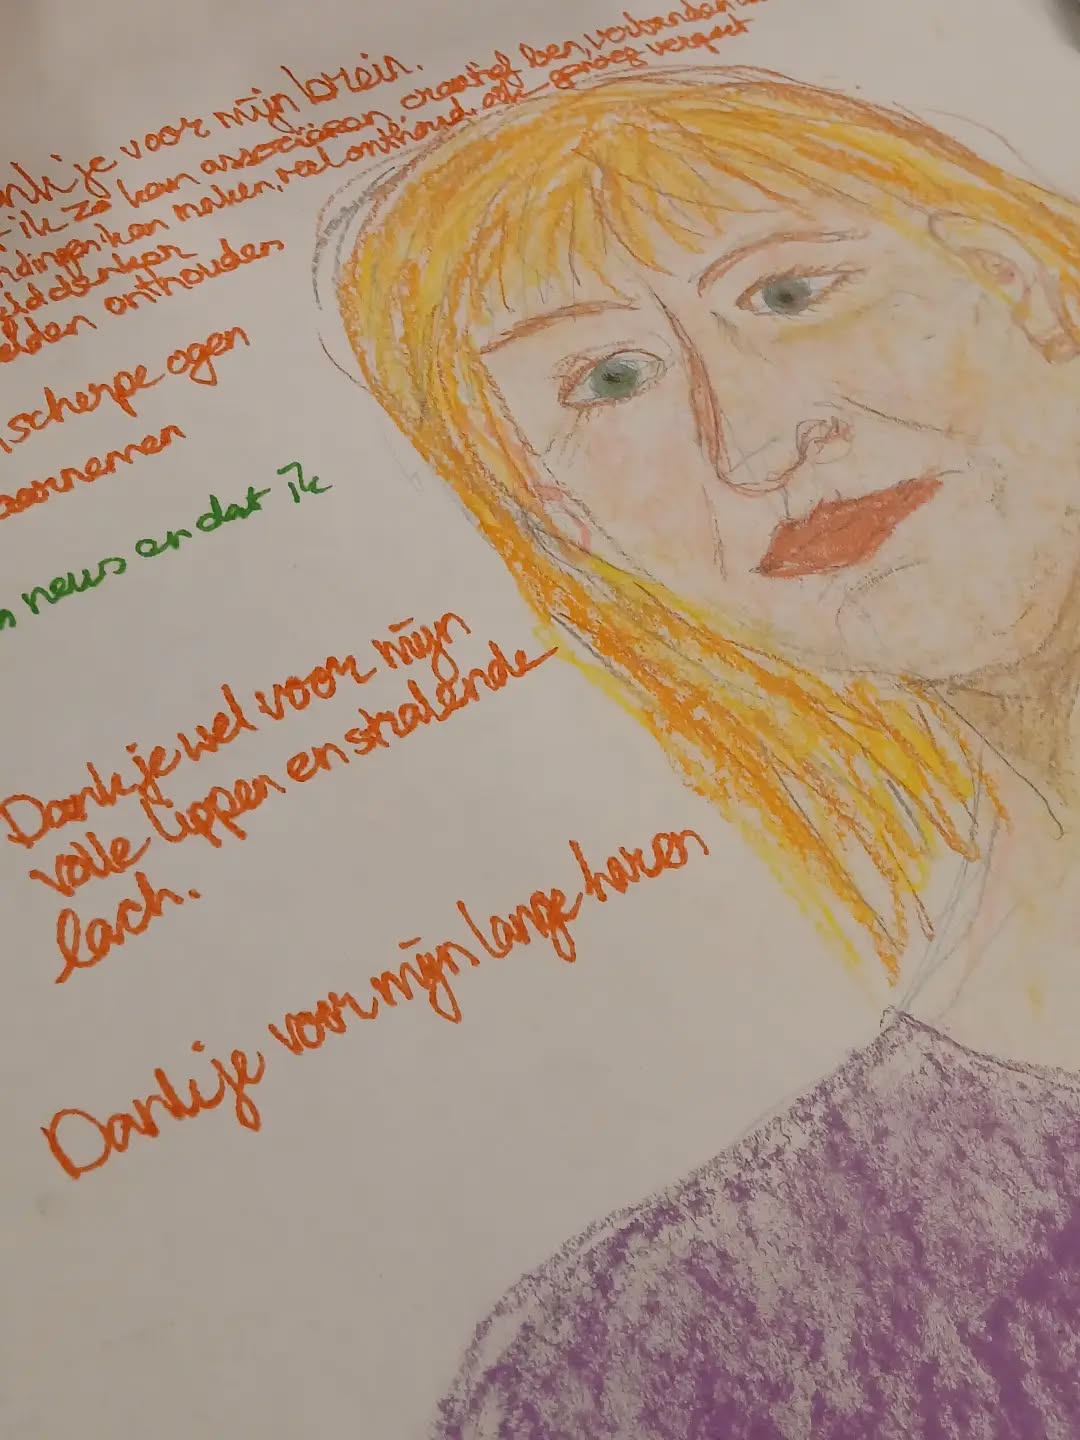 voor mijn brein.
ik zo kan associëren, creatief ben, verbanden
kan maken, veel onthoud, ook genoeg vergeet
onthouden
scherpe ogen
neus en dat ik
Dankjewel voor mijn
volle lippen en stralende
lach.
Dankje voor mijn lange haren